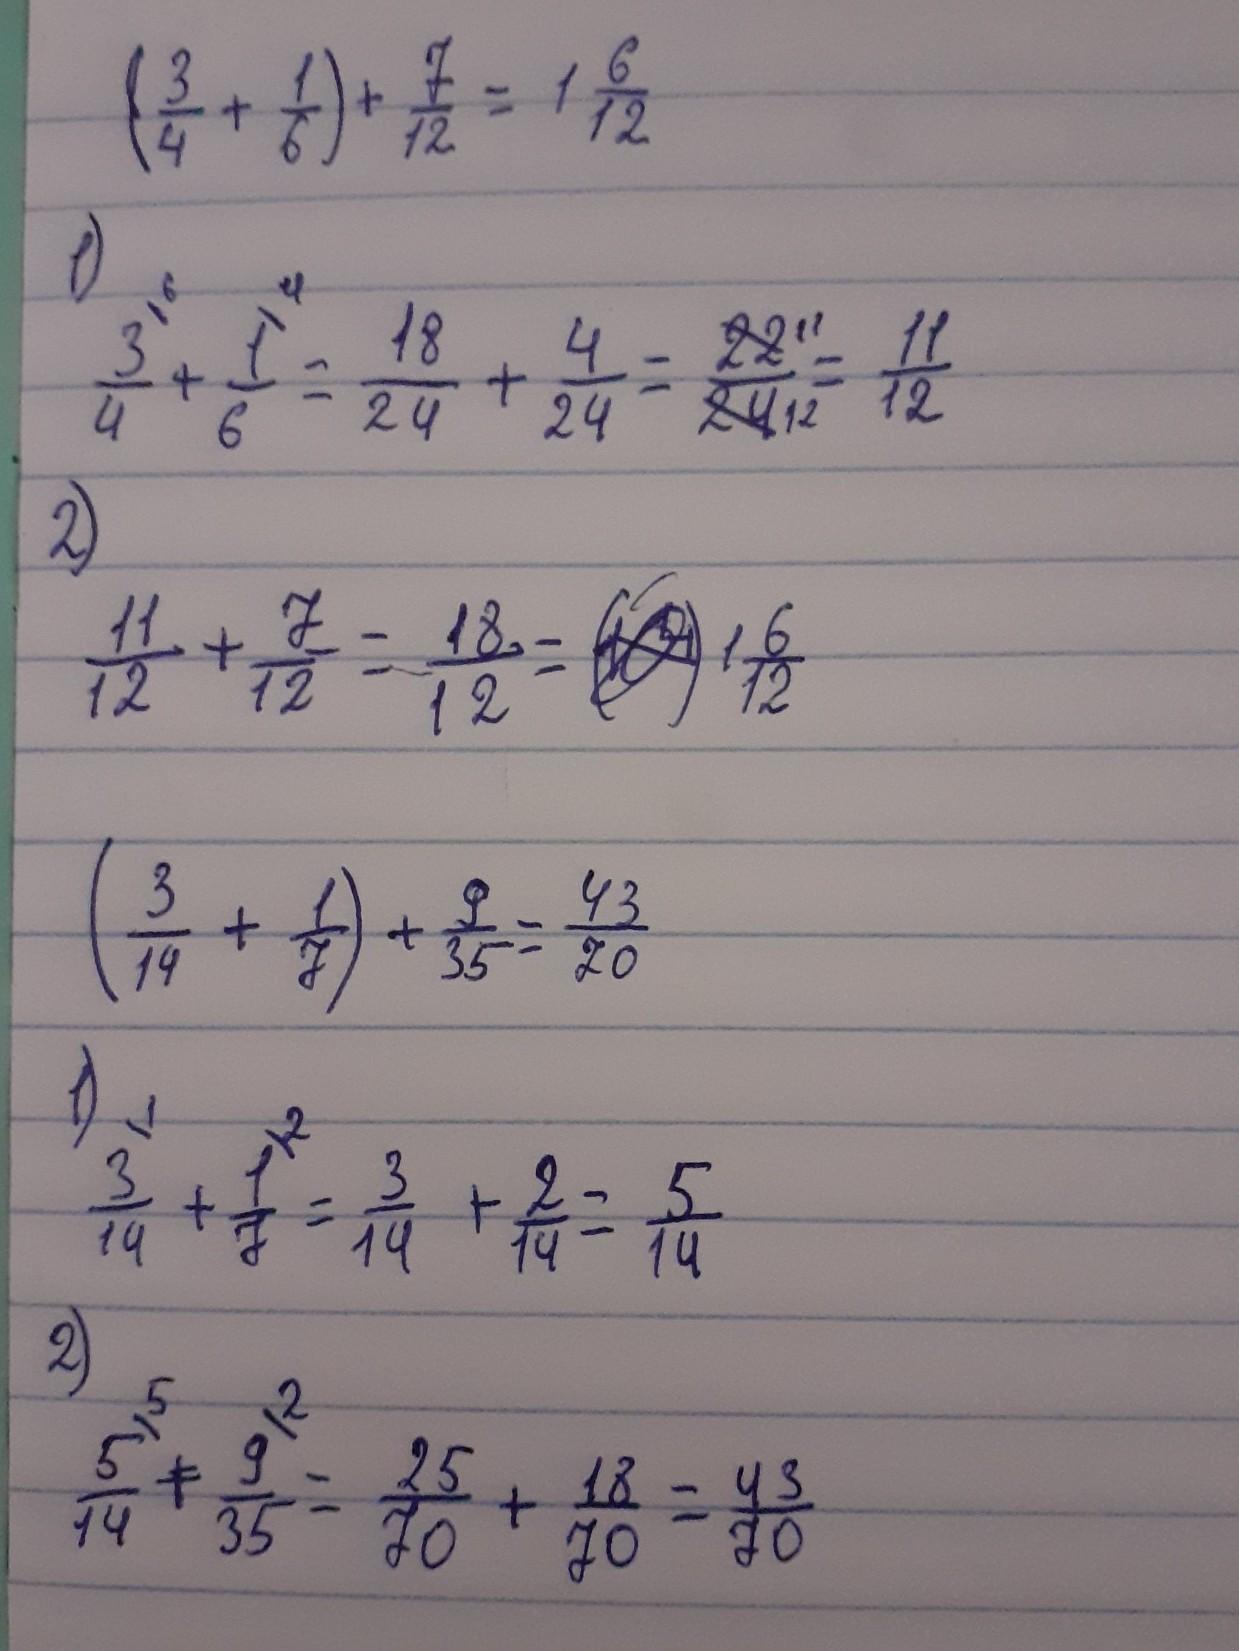 (3/4 + 1/6) + 7/12 = 1 6/12
1)
3/4 \6 + 1/6 \4 = 18/24 + 4/24 = 22 11/24 12 = 11/12
2)
11/12 + 7/12 = 18/12 = 1 6/12
(3/14 + 1/7) + 9/35 = 43/70
1)
3/14 \1 + 1/7 \2 = 3/14 + 2/14 = 5/14
2)
5/14 \5 + 9/35 \2 = 25/70 + 18/70 = 43/70